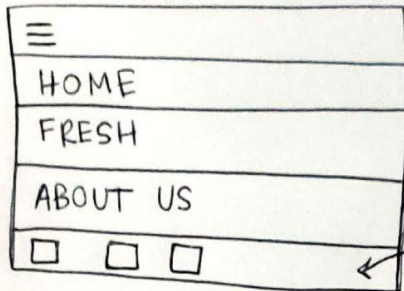 HOME
FRESH
ABOUT US